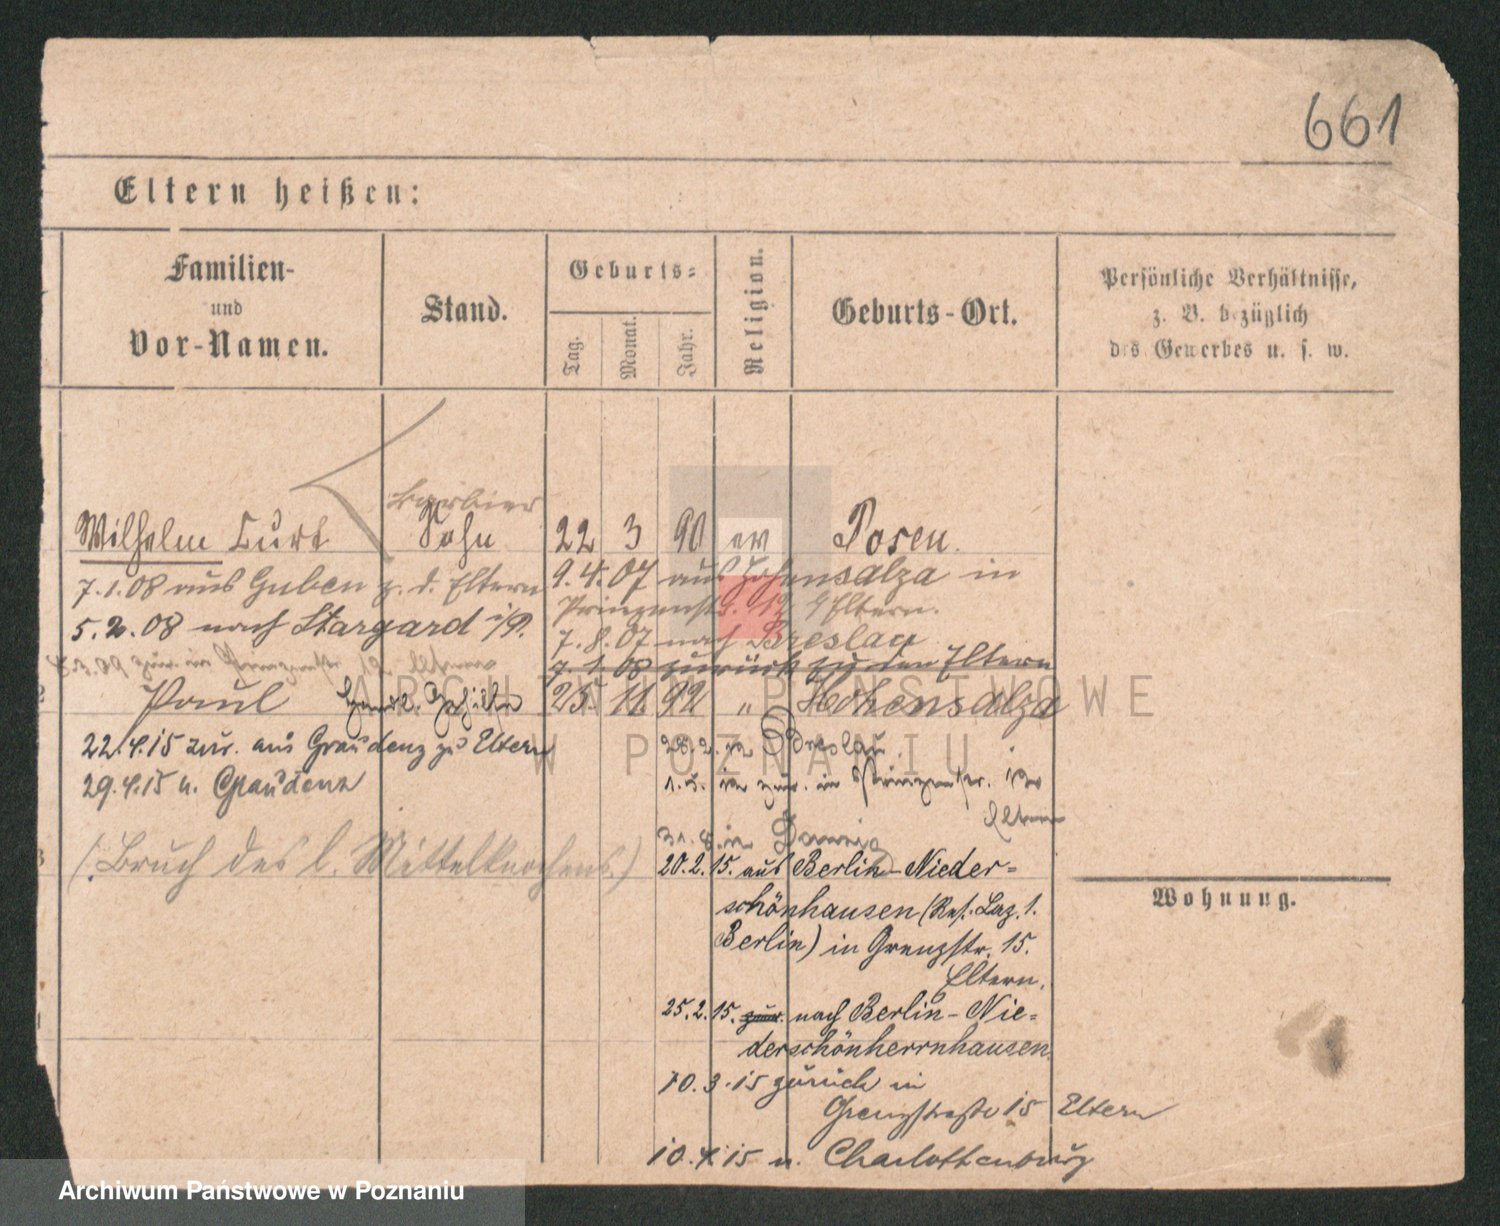 661
Eltern heißen:
Familien-
und
Vor-Namen.
Stand.
Geburts-
Tag.
Monat.
Jahr.
Religion.
Geburts-Ort.
Persönliche Verhältnisse,
z. B. bezüglich
des Gewerbes u. s. w.
Barbier
Wilhelm Curt Sohn 22 3 90 ev Posen.
7.1.08 aus Guben z. d. Eltern
9.4.07 aus Hohensalza in
Prinzenstr. 12 Eltern.
5.2.08 nach Stargard i/P.
7.8.07 nach Breslau
7.1.08 zurück zu den Eltern
3.09 zur. in 12 Eltern
Paul Handl. Gehilfe 25. 11 92 " Hohensalza
22.4.15 zur. aus Graudenz zu Eltern
29.4.15 n. Graudenz
28.2. Breslau
1.3. zur. in Prinzenstr.
Eltern
31.8. in Danzig
(: Bruch des l. Mittelknochens )
20.2.15. aus Berlin-Nieder-
schönhausen (Res. Laz. 1.
Berlin) in Grenzstr. 15.
Eltern.
25.2.15. zur. nach Berlin-Nie-
derschönherrnhausen.
10.3.15 zurück in
Grenzstraße 15 Eltern
10.4.15 n. Charlottenburg
Wohnung.
ARCHIWUM PAŃSTWOWE
W POZNANIU
Archiwum Państwowe w Poznaniu